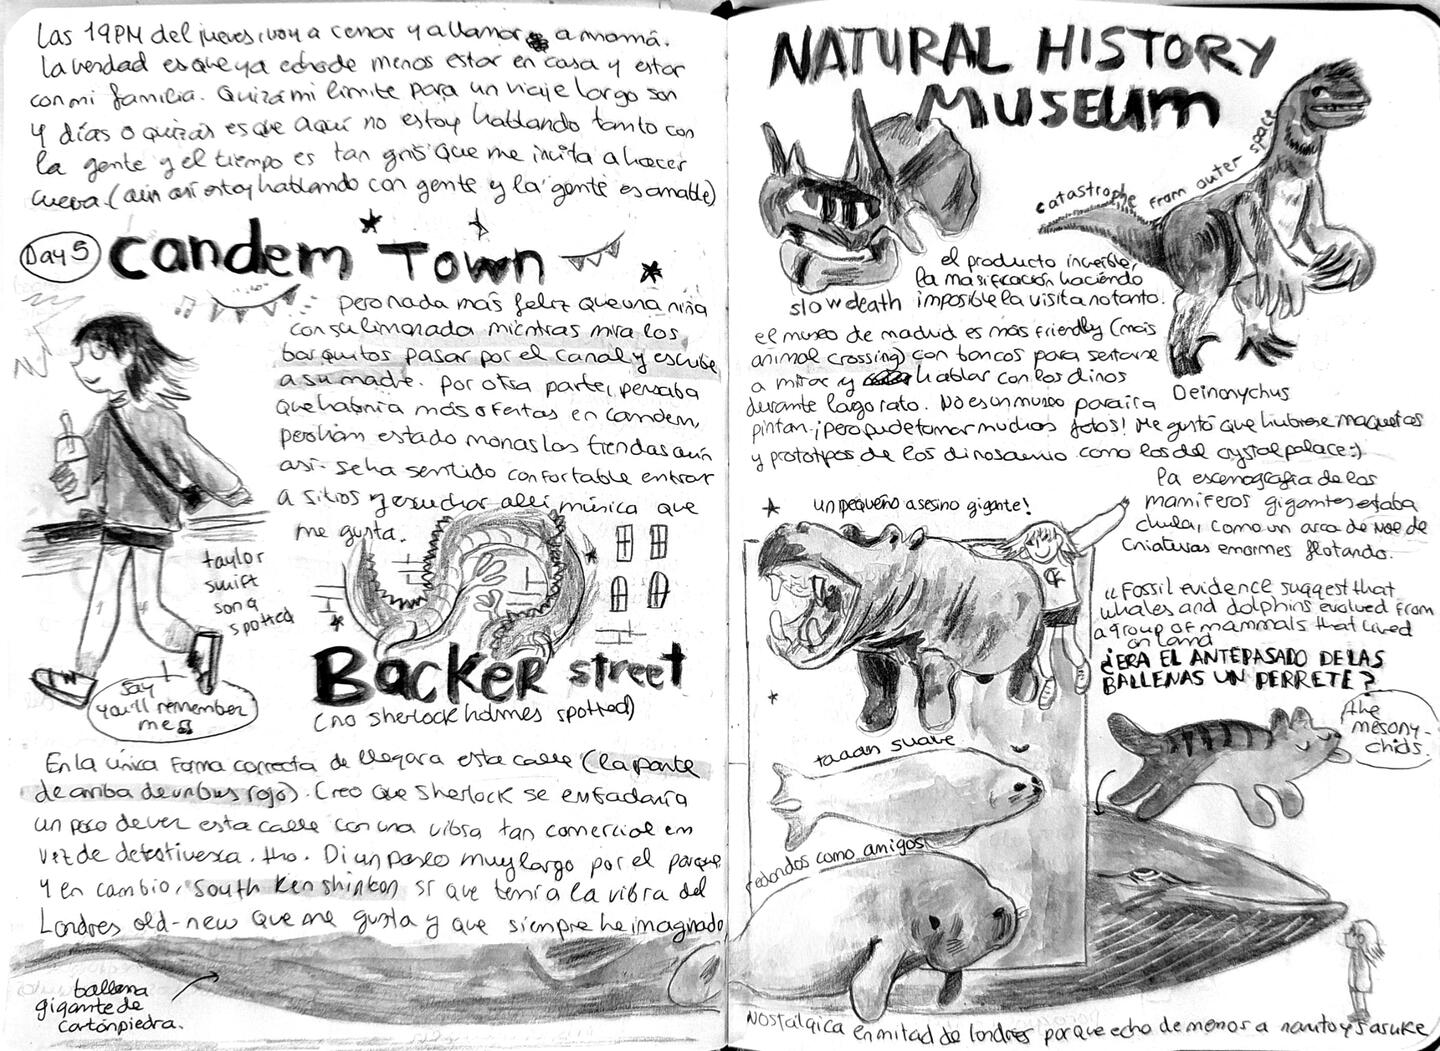 Las 19PM del jueves, voy a cenar y a llamar a mamá.
La verdad es que ya echo de menos estar en casa y estar
con mi familia. Quizá mi límite para un viaje largo son
4 días o quizás es que aquí no estoy hablando tanto con
la gente y el tiempo es tan gris que me incita a hacer
cueva. (aún así estoy hablando con gente y la gente es amable)
Day 5
Candem Town
pero nada más feliz que una niña
con su limonada mientras mira los
barquitos pasar por el canal y escribe
a su madre. por otra parte, pensaba
que habría más ofertas en camdem,
pero han estado monas las tiendas aún
así. se ha sentido confortable entrar
a sitios y escuchar allí música que
me gusta.
taylor
swift
song
spotted
say
you'll remember
me
Backer street
(no sherlock holmes spotted)
En la única forma correcta de llegar a esta calle (la parte
de arriba de un bus rojo). Creo que Sherlock se enfadaría
un poco de ver esta calle con una vibra tan comercial en
vez de detectivesca. tho. Di un paseo muy largo por el parque
y en cambio, South Kenshinkon sí que tenía la vibra del
Londres old-new que me gusta y que siempre he imaginado
ballena
gigante de
cartónpiedra.
NATURAL HISTORY
MUSEUM
catastrophe from outer space
slow death
el producto increíble,
la masificación haciendo
imposible la visita no tanto.
el museo de madrid es más friendly (más
animal crossing) con bancos para sentarse
a mirar y hablar con los dinos
durante largo rato. No es un museo para ir a
pintan. ¡pero pude tomar muchas fotos! Me gustó que hubiese maquetas
y prototipos de los dinosaurio como los del crystal palace :)
Deinonychus
la escenografía de los
mamíferos gigantes estaba
chula, como un arca de Noe de
criaturas enormes flotando.
un pequeño asesino gigante!
"Fossil evidence suggest that
whales and dolphins evolved from
a group of mammals that lived
on land
¿ERA EL ANTEPASADO DE LAS
BALLENAS UN PERRETE?
the
mesony-
chids.
taaan suave
redondos como amigos
Nostálgica en mitad de londres porque echo de menos a naruto y sasuke